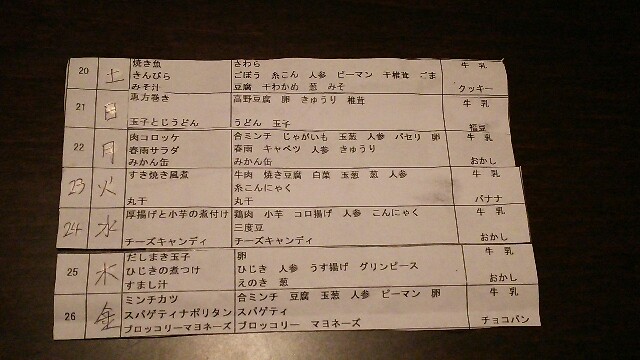 20 土 焼き魚 さわら 牛 乳
きんぴら ごぼう 糸こん 人参 ピーマン 干椎茸 ごま
みそ汁 豆腐 干わかめ 葱 みそ クッキー
21 日 恵方巻き 高野豆腐 卵 きゅうり 椎茸 牛 乳
玉子とじうどん うどん 玉子 福豆
22 月 肉コロッケ 合ミンチ じゃがいも 玉葱 人参 パセリ 卵 牛 乳
春雨サラダ 春雨 キャベツ 人参 きゅうり
みかん缶 みかん缶 おかし
23 火 すき焼き風煮 牛肉 焼き豆腐 白菜 玉葱 葱 人参 牛 乳
糸こんにゃく
丸干 丸干 バナナ
24 水 厚揚げと小芋の煮付け 鶏肉 小芋 コロ揚げ 人参 こんにゃく 牛 乳
三度豆
チーズキャンディ チーズキャンディ おかし
25 木 だしまき玉子 卵 牛 乳
ひじきの煮つけ ひじき 人参 うす揚げ グリンピース
すまし汁 えのき 葱 おかし
26 金 ミンチカツ 合ミンチ 豆腐 玉葱 人参 ピーマン 卵 牛 乳
スパゲティナポリタン スパゲティ
ブロッコリーマヨネーズ ブロッコリー マヨネーズ チョコパン